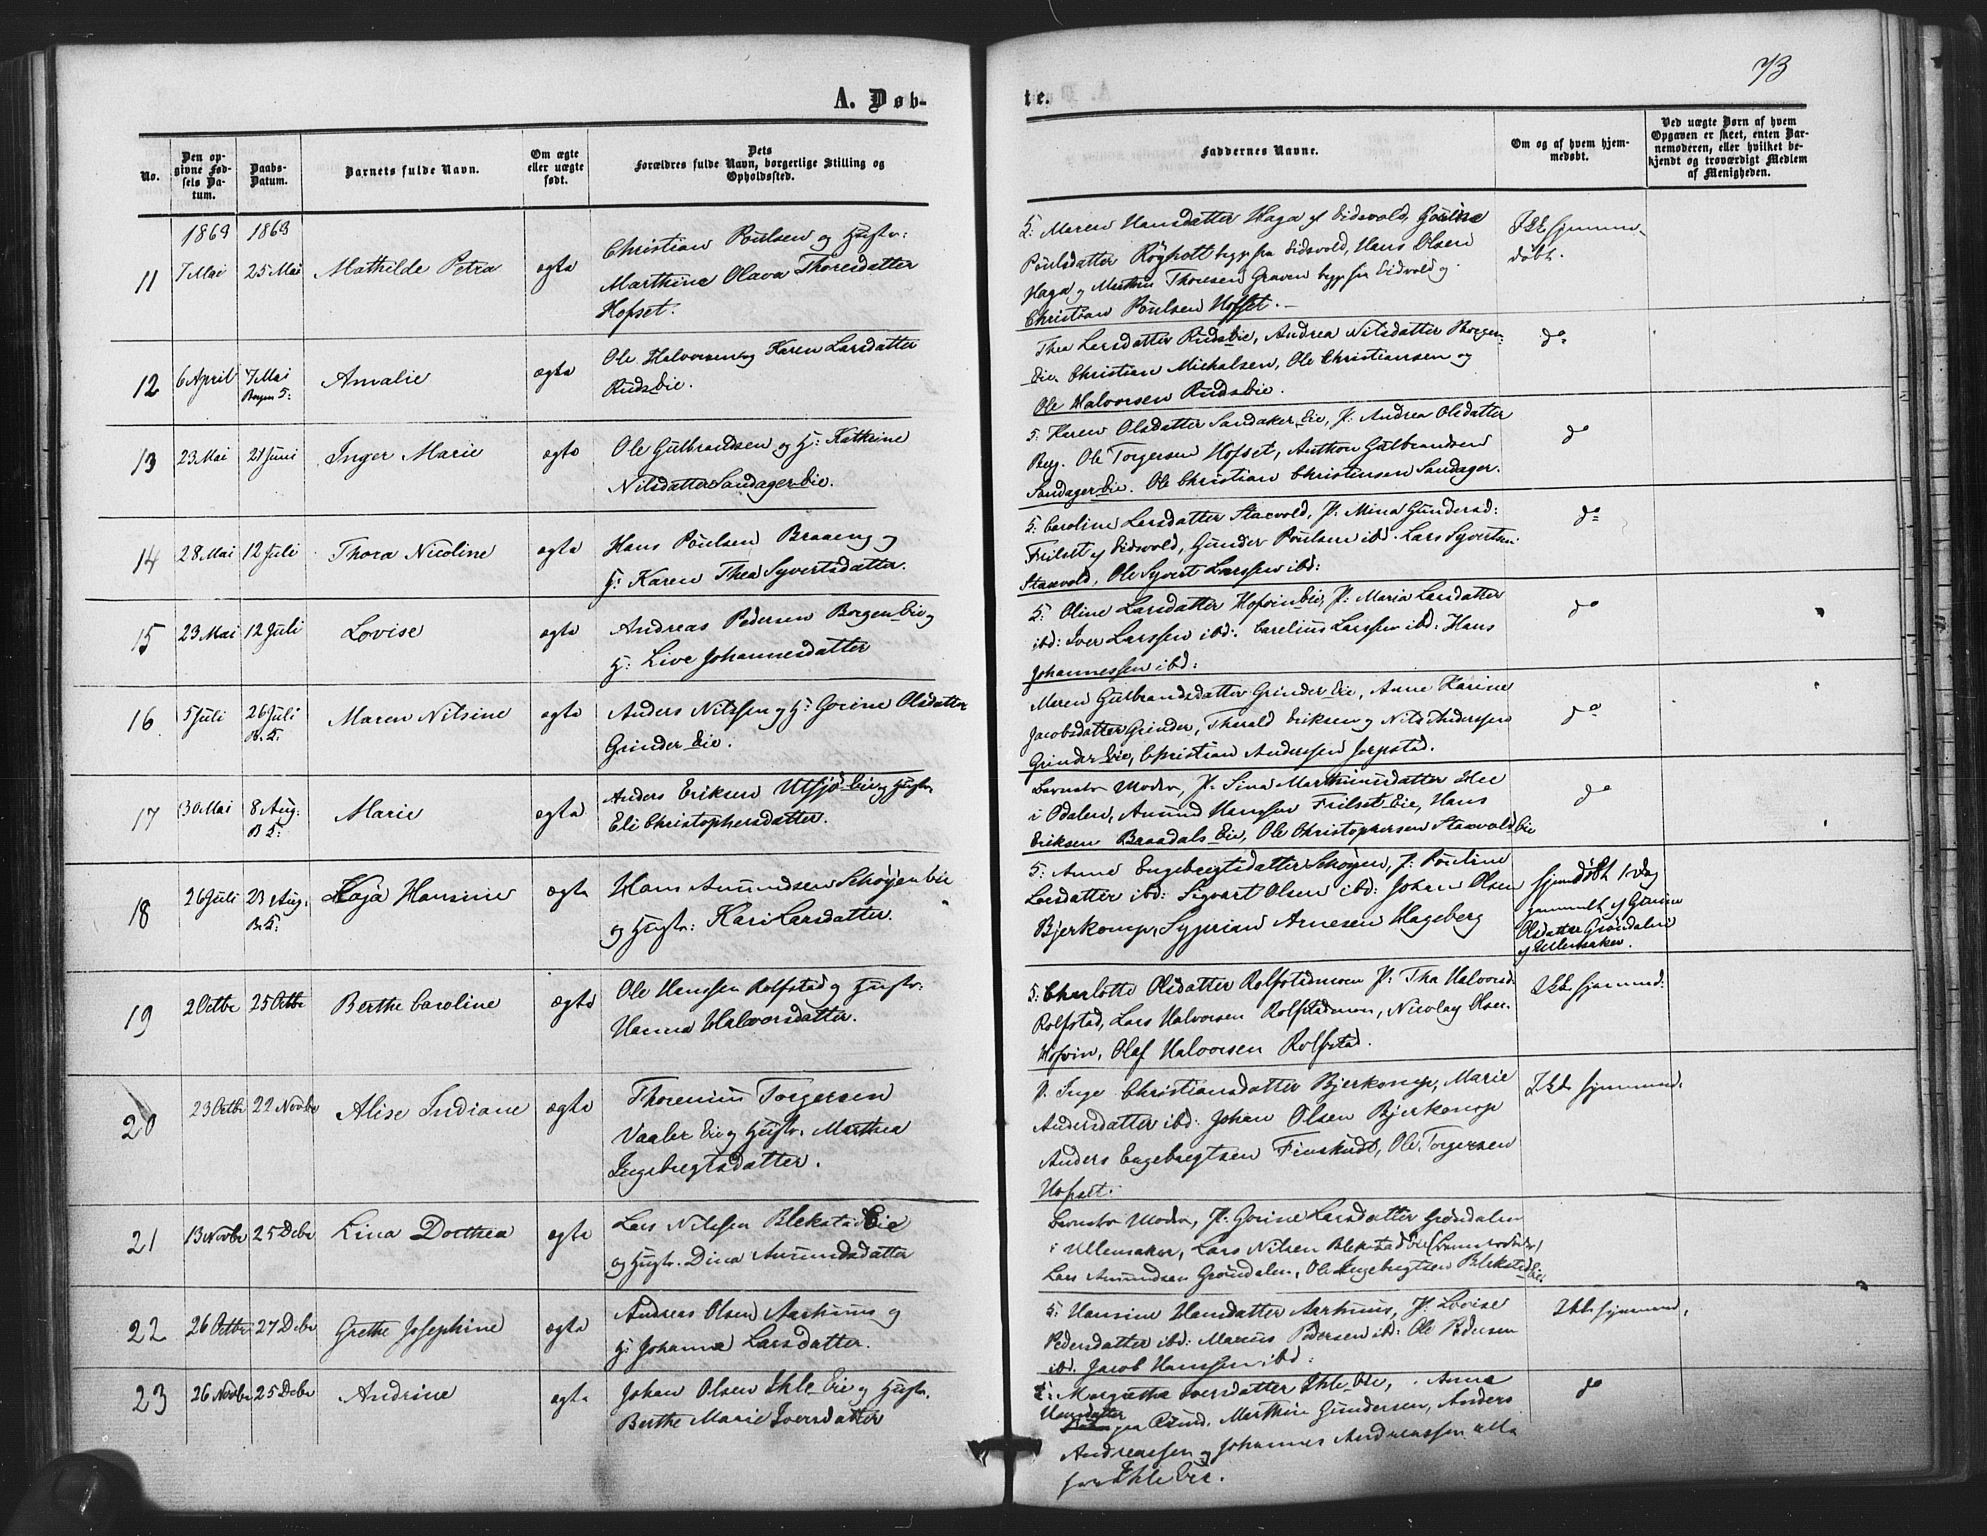 73
A. Døb-
te.
No.
Den op-
givne Fød-
sels Da-
tum.
Daabs-
Datum.
Barnets fulde Navn.
Om ægte
eller uægte
født.
Dets
Forældres fulde Navn, borgerlige Stilling og
Opholdssted.
Faddernes Navne.
Om og af hvem hjem-
medøbt.
Ved uægte Børn af hvem
Opgaven er skeet, enten Bar-
nemoderen, eller hvilket be-
kjendt og troværdigt Medlem
af Menigheden.
1869 1869
11 7 Mai 25 Mai Mathilde Petra ægta
Christian Poulsen og Hustr:
Marthine Olava Thoresdatter
Hofset.
S: Maren Hansdatter Haga af Eidsvold,
Poulsdatter fra Eidsvold, Hans Olsen
Haga og Thoresen Graven fra Eidsvold og
Christian Poulsen Hofset.
Ikke hjemme-
døbt.
12 6 April 7 Mai Amalie ægta
Borgen S:
Ole Halvorsen og Karen Larsdatter
Rudseie.
Thea Larsdatter Rudseie, Andrea Nilsdatter Borger-
eie. Christian Michalsen, Ole Christiansen og
Ole Halvorsen Rudseie.
do
13 23 Mai 21 Juni Inger Marie ægta
Ole Gulbrandsen og H: Kathrine
Nilsdatter Sandager Eie.
S. Karen Olsdatter Sandaker Eie, P: Andrea Olsdatter
Berg. Ole Torgersen Hofset, Anthon Gulbrandsen
Sandager Eie. Ole Christian Christensen Sandager.
do
14 28 Mai 12 Juli Thora Nicoline ægta
Hans Poulsen Braaeng og
H: Karen Thea Syvertsdatter.
S: Caroline Larsdatter Staxvold, P: Mina Gundersd:
Frilset af Eidsvold, Gunder Poulsen ibd. Lars Syvertsen
Staxvold, Ole Syvert Larssen ibd:
do
15 23 Mai 12 Juli Lovise ægta
Andreas Pedersen Borgen Eie og
H: Live Johannesdatter
S: Oline Larsdatter Hofvin Eie, P: Maria Larsdatter
ibd: Iver Larssen ibd: Carelius Larssen ibd: Hans
Johannessen ibd:
do
16 5 Juli 26 Juli Maren Nilsine ægta
B. S:
Anders Nilssen og H: Gorine Olsdatter
Grinder Eie.
Maren Gulbrandsdatter Grinder Eie, Anne Karine
Jacobsdatter Grinder, Tharald Eriksen og Nils Anderssen
Grinder Eie, Christian Anderssen Jorpstad.
do
17 30 Mai 8 Aug: Marie ægta
B. S:
Anders Eriksen Utsjø Eie og Hustr.
Eli Christophersdatter.
Barnets Moder, P: Sina Marthinusdatter
i Odalen, Amund Hansen Frilset Eie, Hans
Eriksen Braadals Eie, Ole Christophersen Staxvold Eie
do
18 26 Juli 23 Aug. Kaja Hansine ægta
B. S:
Hans Amundsen Schøyen Eie
og Hustr: Kari Larsdatter.
S: Anne Engebregtsdatter Schøyen, P: Pouline
Larsdatter ibd: Sigvart Olsen ibd: Johan Olsen
Bjerkomp, Syprian Arnesen Hageberg
hjemdøbt 1 Dag
gammelt af Gorine
Olsdatter Grøndalen
af Ullensaker.
19 2 Octbr 25 Octbr Berthe Caroline ægta
Ole Hanssen Rolfstad og Hustr:
Hanna Halvorsdatter.
S: Charlotte Olsdatter Rolfstadmoen P: Thea Halvorsd.
Rolfstad, Lars Halvorsen Rolfstadmoen, Nicolay Olsen
Hofvin, Olaf Halvorsen Rolfstad.
Ikke hjemmed:
20 23 Octbr 22 Novbr Alise Indiane ægta
Thorenius Torgersen
Vaaler Eie og Hustr. Marthea
Ingebregtsdatter.
P. Inge Christiansdatter Bjerkomp, Marie
Andersdatter ibd. Johan Olsen Bjerkomp
Anders Engebregtsen Finskudt, Ole Torgersen
Hofset.
Ikke hjemmed.
21 13 Novbr 25 Debr Lina Dorthea ægta
Lars Nilssen Blekstad Eie
og Hustr. Dina Amundsdatter
Barnets Moder, P: Gorine Larsdatter Grøndalen
i Ullensaker, Lars Nilsen Blekstad Eie
Lars Amundsen Grøndalen, Ole Engebregtsen Blekstad Eie.
22 26 Octbr 27 Debr Grethe Josephine ægta
Andreas Olsen Aarhuus og
H: Johanne Larsdatter.
S: Hansine Hansdatter Aarhuus, P: Lovise
Pedersdatter ibd: Marius Pedersen ibd: Ole Pedersen
ibd. Jacob Hanssen ibd:
Ikke hjemmed.
23 26 Novbr 25 Debr Andrine ægta
Johan Olsen Ihle Eie og Hustr.
Berthe Marie Iversdatter
S: Margrethe Iversdatter Ihle Eie, Anna
Hansdatter
Marthin Gundersen, Anders
Andreassen og Johannes Andreassen alle
fra Ihle Eie.
do